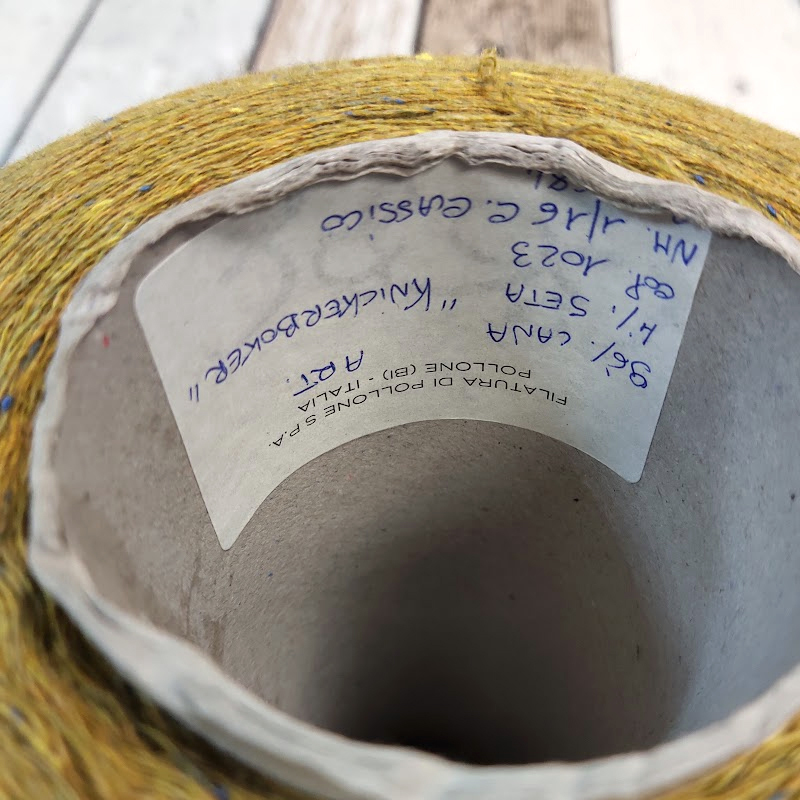 FILATURA DI POLLONE S.P.A.
POLLONE (BI) - ITALIA
ART. "KNICKERBOKER"
96% LANA
4% SETA
COL. 1023
NM. 1/16 C. CLASSICO